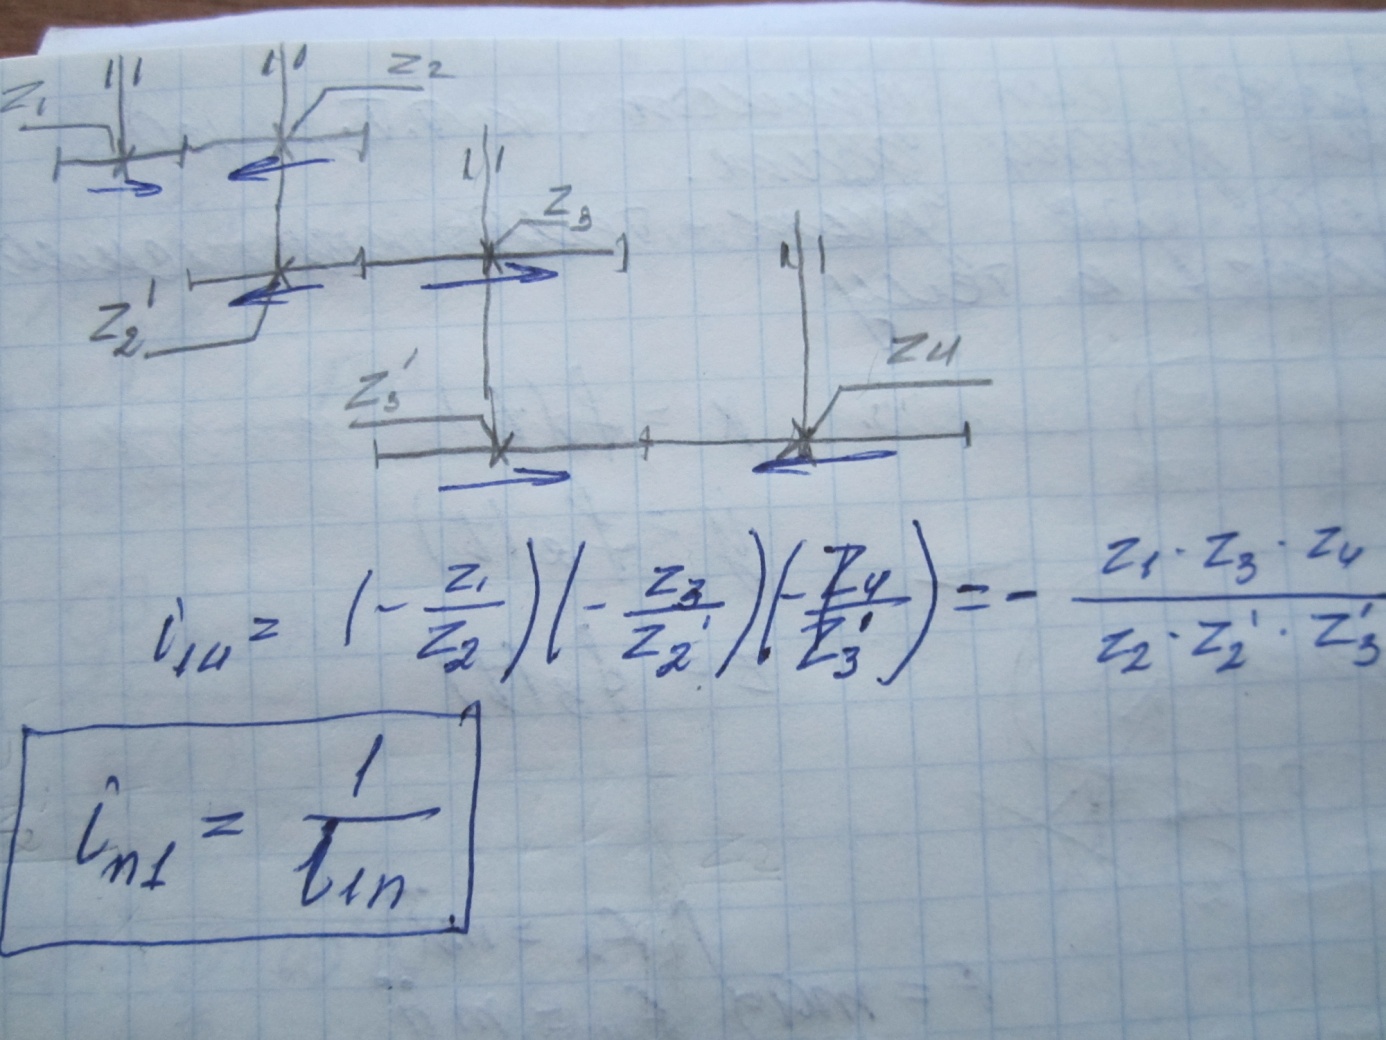 z₁ z₂
z₃
z₂'
z₃' z₄
i₁₄ = (- z₁/z₂)(- z₃/z₂')(- z₄/z₃') = - z₁·z₃·z₄ / z₂·z₂'·z₃'
iₙ₁ = 1/i₁ₙ